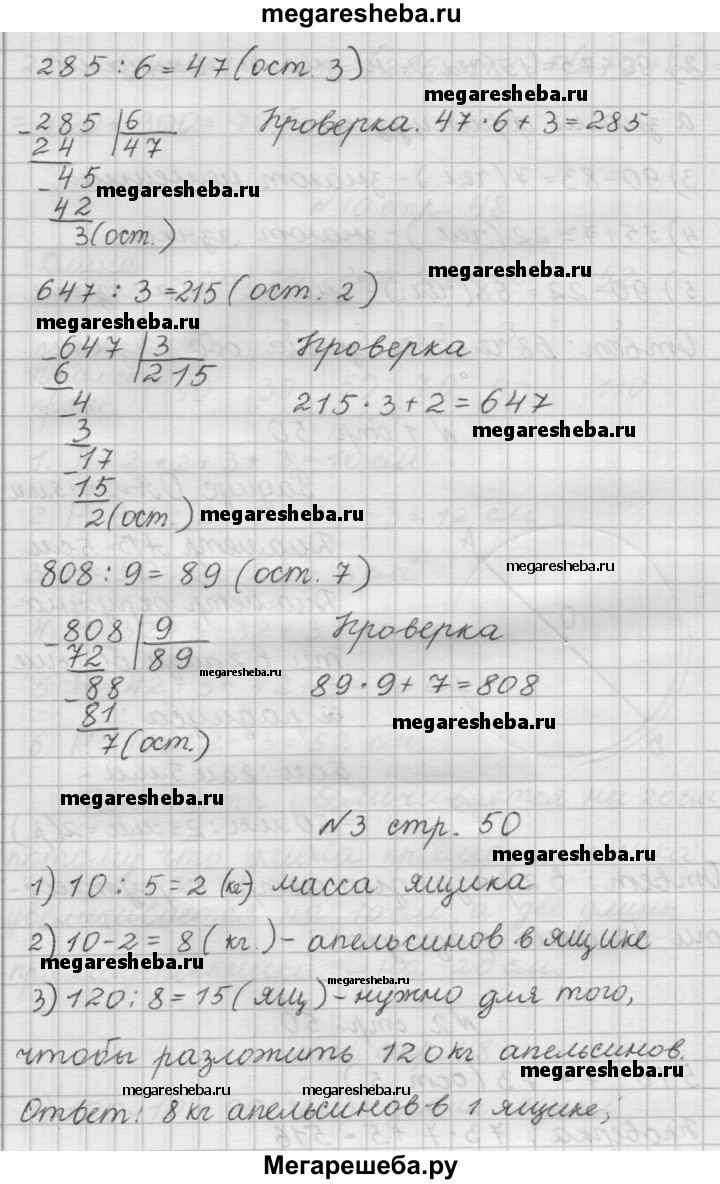 megaresheba.ru
285 : 6 = 47 (ост. 3)
megaresheba.ru
285 | 6 Проверка. 47·6 + 3 = 285
24 | 47
- 45
megaresheba.ru
42
3 (ост.)
megaresheba.ru
647 : 3 = 215 (ост. 2)
megaresheba.ru
- 647 | 3 Проверка
6 | 215
- 4 215·3 + 2 = 647
3
megaresheba.ru
- 17
15
2 (ост.)
megaresheba.ru
megaresheba.ru
808 : 9 = 89 (ост. 7)
- 808 | 9 Проверка
72 | 89
megaresheba.ru
- 88 89·9 + 7 = 808
81
megaresheba.ru
7 (ост.)
megaresheba.ru
№3 стр. 50
megaresheba.ru
1) 10 : 5 = 2 (кг) масса ящика
2) 10 - 2 = 8 (кг.) - апельсинов в ящике
megaresheba.ru
megaresheba.ru
3) 120 : 8 = 15 (ящ) - нужно для того,
чтобы разложить 120 кг апельсинов.
megaresheba.ru
megaresheba.ru megaresheba.ru
Ответ: 8 кг апельсинов в 1 ящике,
Мегарешеба.ру